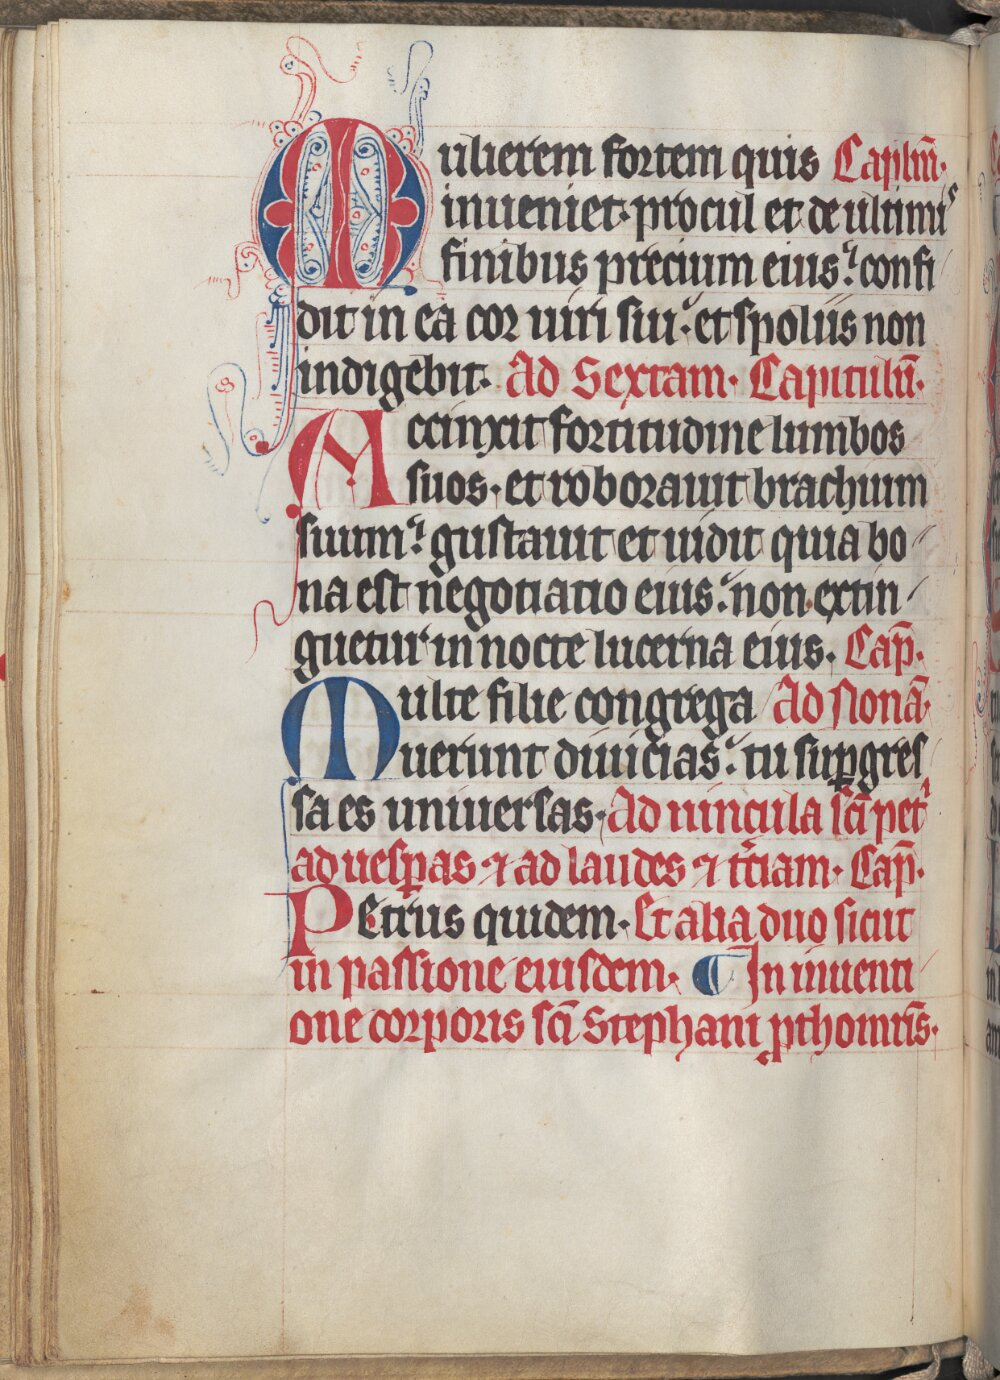 Mulierem fortem quis Capl̄m̄.
inueniet. procul et de ultimis
finibus precium eius. confi
dit in ea cor uiri sui. et spoliis non
indigebit. Ad Sextam. Capitulū.
Accinxit fortitudine lumbos
suos. et roborauit brachium
suum. gustauit et uidit quia bo
na est negotiatio eius. non extin
guetur in nocte lucerna eius. Cap̄.
Multe filie congrega Ad Nonā.
uerunt diuicias. tu suꝑgres
sa es uniuersas. Ad uincula sc̄i pet
ad uesꝑas ⁊ ad laudes ⁊ t̄ciam. Cap̄.
Petrus quidem. Et alia duo sicut
in passione eiusdem. ¶ In inuenti
one corporis sc̄i Stephani ꝓthom̄ris.